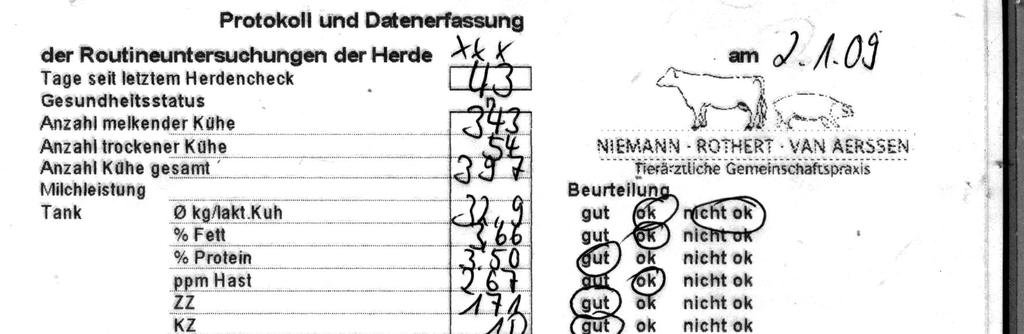 Protokoll und Datenerfassung
der Routineuntersuchungen der Herde xxx am 2.1.09
Tage seit letztem Herdencheck 43
Gesundheitsstatus
Anzahl melkender Kühe 343
Anzahl trockener Kühe 54
NIEMANN · ROTHERT · VAN AERSSEN
Anzahl Kühe gesamt 397
Tierärztliche Gemeinschaftspraxis
Milchleistung Beurteilung
Tank Ø kg/lakt.Kuh 32,9 gut ok nicht ok
% Fett 3,66 gut ok nicht ok
% Protein 3.50 gut ok nicht ok
ppm Hast 267 gut ok nicht ok
ZZ 171 gut ok nicht ok
KZ 10 gut ok nicht ok